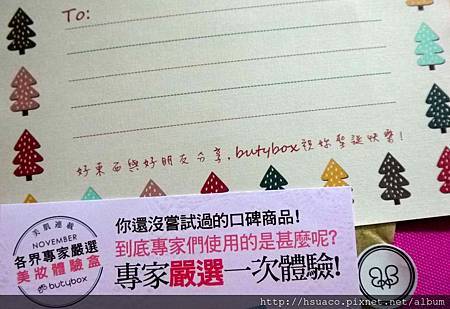 To:
好東西與好朋友分享,butybox祝妳聖誕快樂!
美肌連載
NOVEMBER
各界專家嚴選
美妝體驗盒
butybox
你還沒嘗試過的口碑商品!
到底專家們使用的是甚麼呢?
專家嚴選一次體驗!
http://hsuaco.pixnet.net/album